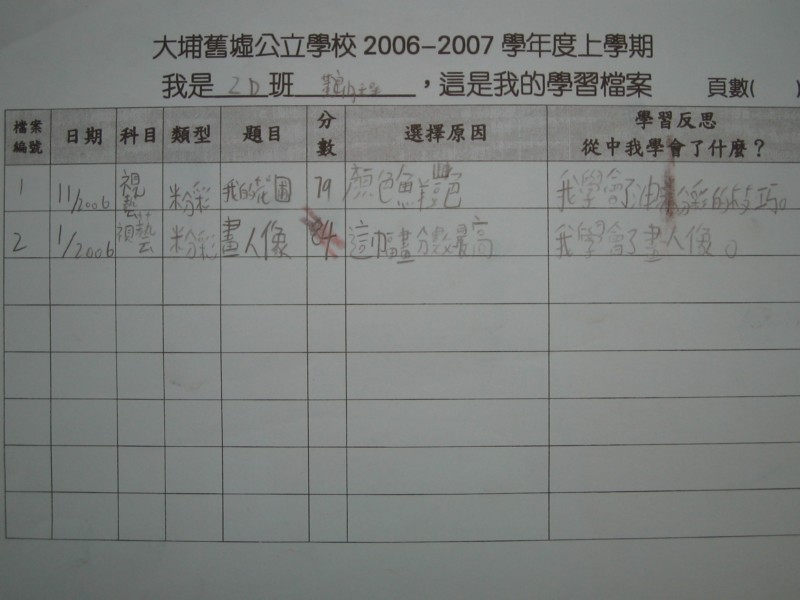 大埔舊墟公立學校 2006–2007 學年度上學期
我是 2D 班，這是我的學習檔案 頁數( )
檔案編號 日期 科目 類型 題目 分數 選擇原因 學習反思 從中我學會了什麼？
1 11/2006 視藝 粉彩 我的花園 79 顏色鮮豔 我學會了油粉彩的技巧。
2 1/2006 視藝 粉彩 畫人像 84 這幅畫分數最高 我學會了畫人像。